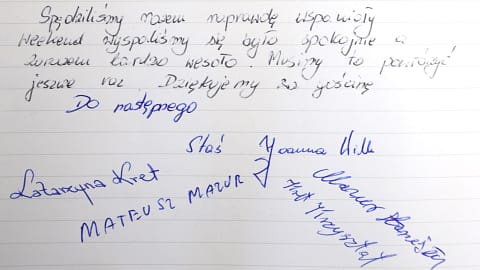 Spędziliśmy razem naprawdę wspaniały
weekend wyspaliśmy się było spokojnie a
zarazem bardzo wesoło. Musimy to powtórzyć
jeszcze raz. Dziękujemy za gościnę
Do następnego
Staś Joanna Wilk
Katarzyna Kret
MATEUSZ MAZUR
Mazur Stanisław
Kret Krzysztof